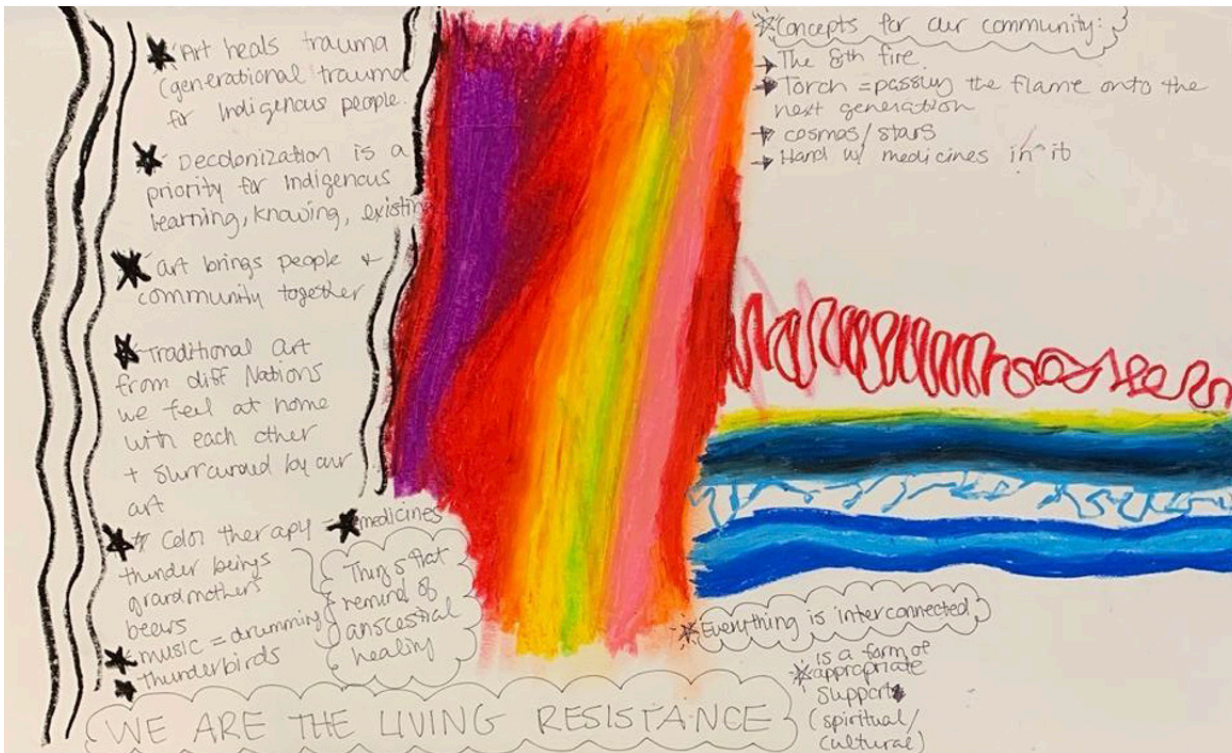 Art heals trauma
(generational trauma
for Indigenous people.
Decolonization is a
priority for Indigenous
learning, knowing, existing
art brings people +
community together
Traditional art
from diff Nations
we feel at home
with each other
+ surrounded by our
art
Color therapy
thunder beings
grandmothers
music = drumming
thunderbirds
medicines
Things that
remind of
anscestral
healing
WE ARE THE LIVING RESISTANCE
Concepts for our community:
→ The 8th fire.
→ Torch = passing the flame onto the
next generation
→ cosmos/stars
→ Hand w/ medicines in it
Everything is interconnected
is a form of
appropriate
support
(spiritual/
cultural)